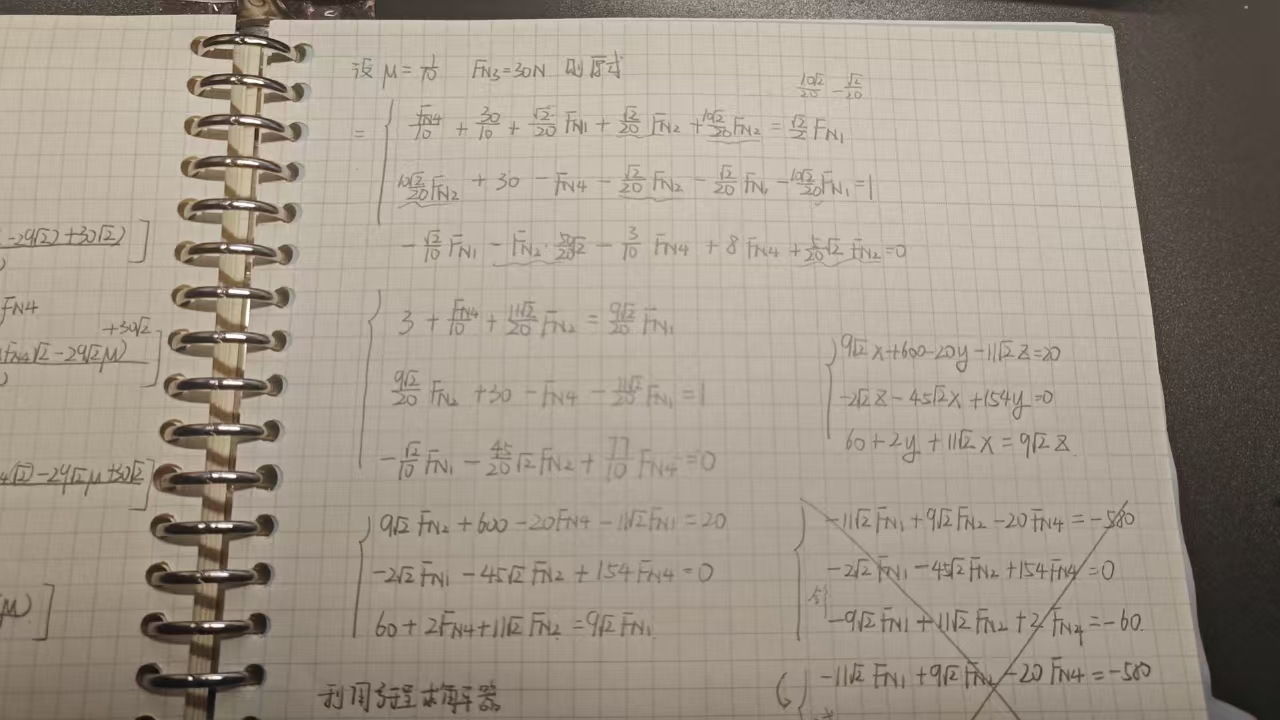 -29√2)+30√2)]
FN4
+30√2
FN4√2-29√2μ)]
4√2)-29√2μ+30√2]
μ)]
设 μ=1/10 FN3=30N 则原式
10√2/20 - √2/20
= { FN4/10 + 30/10 + √2/20 FN1 + √2/20 FN2 + 10√2/20 FN2 = √2/2 FN1
10√2/20 FN2 + 30 - FN4 - √2/20 FN2 - √2/20 FN1 - 10√2/20 FN1 = 1
-√2/10 FN1 - FN2 · 50/20 √2 - 3/10 FN4 + 8 FN4 + 5/20 √2 FN2 = 0
{ 3 + FN4/10 + 11√2/20 FN2 = 9√2/20 FN1
9√2/20 FN2 + 30 - FN4 - 11√2/20 FN1 = 1
-√2/10 FN1 - 45/20 √2 FN2 + 77/10 FN4 = 0
{ 9√2x+600-20y-11√2z=20
-2√2z-45√2x+154y=0
60+2y+11√2x=9√2z
{ 9√2 FN2 + 600 - 20FN4 - 11√2 FN1 = 20
-2√2 FN1 - 45√2 FN2 + 154 FN4 = 0
60 + 2FN4 + 11√2 FN2 = 9√2 FN1
{ -11√2 FN1 + 9√2 FN2 - 20 FN4 = -580
-2√2 FN1 - 45√2 FN2 + 154 FN4 = 0
-9√2 FN1 + 11√2 FN2 + 2 FN4 = -60
{ -11√2 FN1 + 9√2 FN2 - 20 FN4 = -580
利用方程求解器